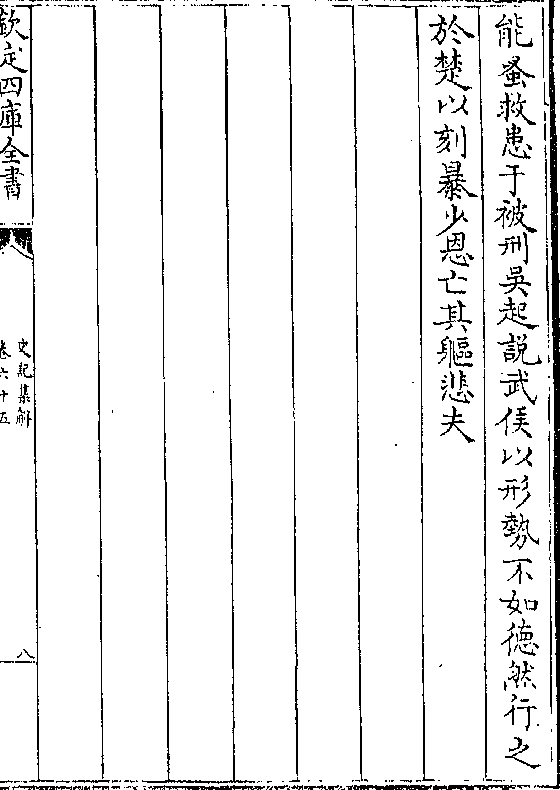 能蚤救患于被刑吳起說武侯以形勢不如德然行之
於楚以刻暴少恩亡其軀悲夫
欽定四庫全書
史記集解
卷六十五
八